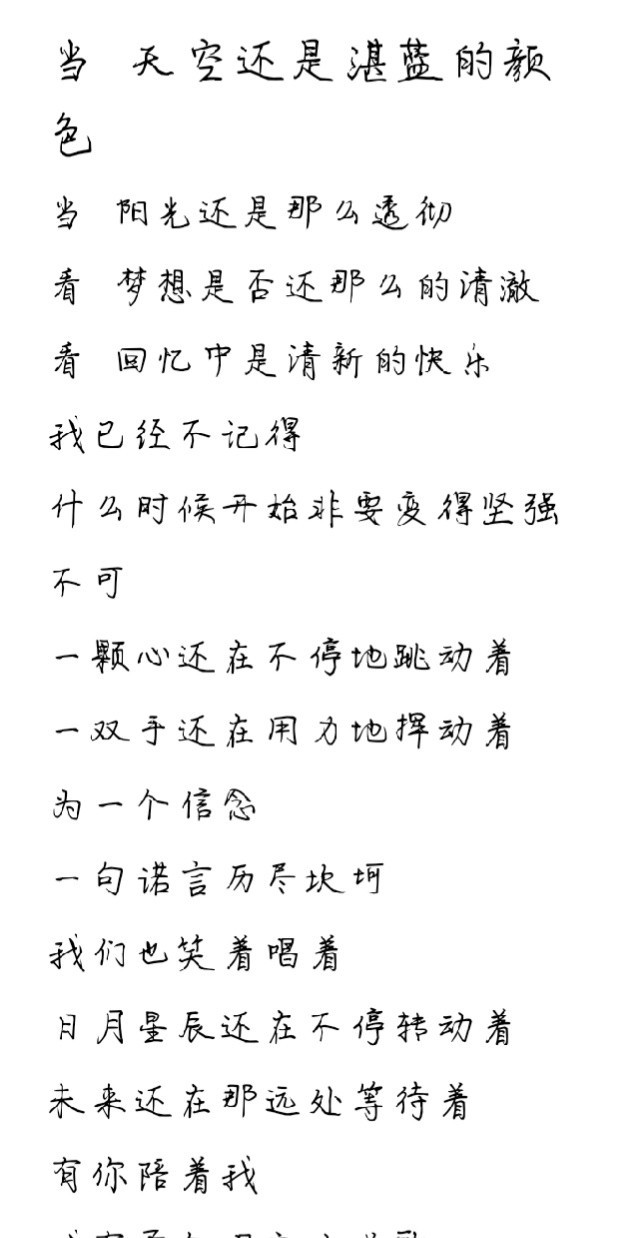 当 天空还是湛蓝的颜
色
当 阳光还是那么透彻
看 梦想是否还那么的清澈
看 回忆中是清新的快乐
我已经不记得
什么时候开始非要变得坚强
不可
一颗心还在不停地跳动着
一双手还在用力地挥动着
为一个信念
一句诺言历尽坎坷
我们也笑着唱着
日月星辰还在不停转动着
未来还在那远处等待着
有你陪着我